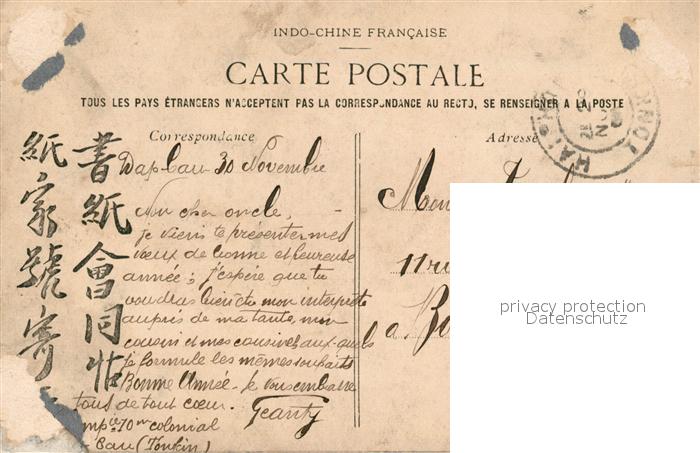 INDO-CHINE FRANÇAISE
CARTE POSTALE
TOUS LES PAYS ÉTRANGERS N'ACCEPTENT PAS LA CORRESPONDANCE AU RECTO, SE RENSEIGNER A LA POSTE
Correspondance
Dap Cau 30 Novembre
Mon cher oncle,
je viens te présenter mes
vœux de bonne et heureuse
année; j'espère que tu
voudras bien être mon interprète
auprès de ma tante, mon
cousin et mes cousines aux-quels
je formule les mêmes souhaits
Bonne Année - Je vous embrasse
tous de tout cœur.
70 colonial
Cau (Tonkin)
書紙會同帖
紙家號寄
Adresse
11 
à
HAI
privacy protection
Datenschutz